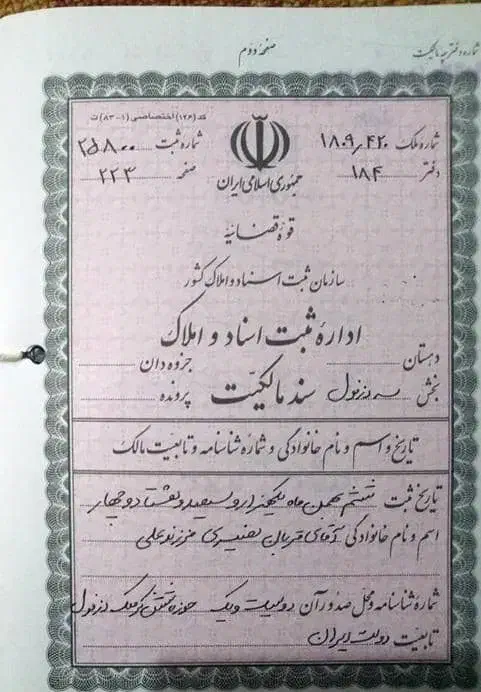 صفحه دوم
شماره دفترچه مالکیت
کد (۱۲۶) اختصاصی (۱-۸۳) ت
شماره ملک ۱۸۰۹٫۴۲۰
شماره ثبت ۲۵۸۰۰
دفتر ۱۸۴
صفحه ۲۲۳
جمهوری اسلامی ایران
قوه قضائیه
سازمان ثبت اسناد و املاک کشور
اداره ثبت اسناد و املاک
دهستان
جزوه دان
بخش سه دزفول
سند مالکیت
پرونده
تاریخ و اسم و نام خانوادگی و شماره شناسنامه و تابعیت مالک
تاریخ ثبت ششم بهمن ماه یکهزار و سیصد و هشتاد و چهار
اسم و نام خانوادگی آقای قربان فرزند علی
شماره شناسنامه و محل صدور آن دویست و یک حوزه دزفول
تابعیت دولت ایران